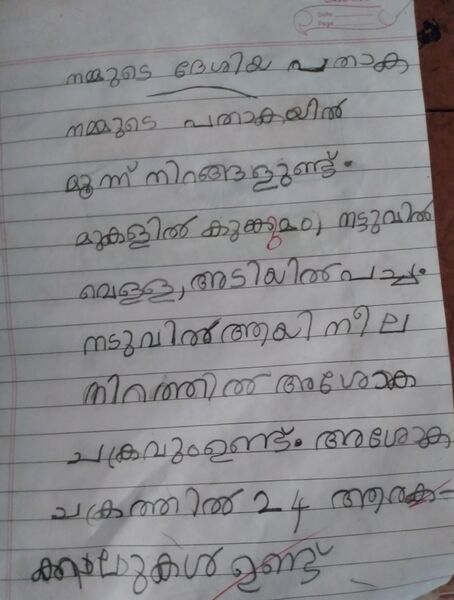 Date
Page
നമ്മുടെ ദേശിയ പതാക
നമ്മുടെ പതാകയിൽ
മൂന്ന് നിറങ്ങളുണ്ട്.
മുകളിൽ കുങ്കുമം, നടുവിൽ
വെള്ള, അടിയിൽ പച്ച.
നടുവിൽ ആയി നീല
നിറത്തിൽ അശോക
ചക്രവും ഉണ്ട്. അശോക
ചക്രത്തിൽ 24 ആരക്-
കാലുകൾ ഉണ്ട്